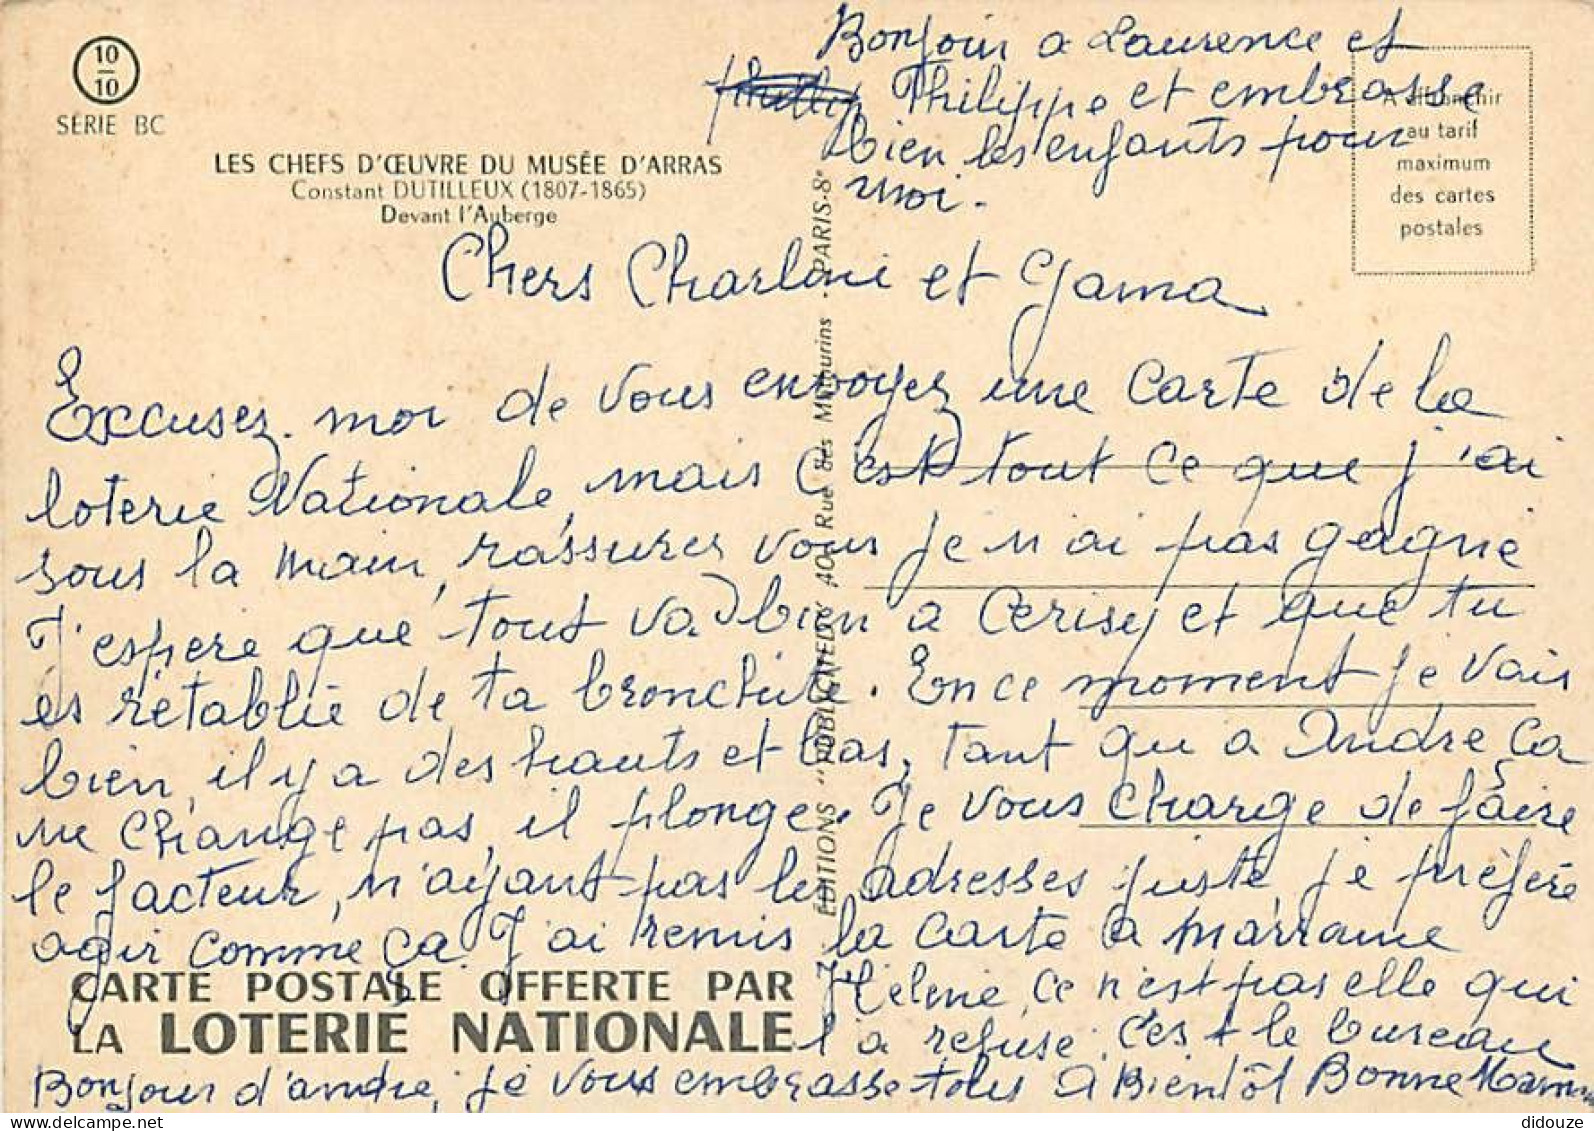 10
10
SÉRIE BC
LES CHEFS D'ŒUVRE DU MUSÉE D'ARRAS
Constant DUTILLEUX (1807-1865)
Devant l'Auberge
A affranchir
au tarif
maximum
des cartes
postales
Bonjour a Laurence et
Philippe et embrasse
bien les enfants pour
moi.
Chers et
Excusez. moi de vous envoyez une carte de la
loterie Nationale, mais c'est tout ce que j'ai
sous la main, rassurez vous je n'ai pas gagné
J'espere que tout va bien a Cerisy et que tu
es rétablie de ta bronchite. En ce moment je vais
bien, il y a des hauts et bas, tant qu a Andre ça
ne change pas, il plonge. Je vous charge de faire
le facteur, n'ayant pas les adresses juste, je préfère
agir comme ça. J'ai remis la carte a marraine
Hélène, ce n'est pas elle qui
l'a refusé. c'est le bureau
Bonjour d'andre, je vous embrasse tous A Bientôt Bonne Mam
EDITIONS "PUBLICITEDI" 40, Rue des Mathurins . PARIS-8e
CARTE POSTALE OFFERTE PAR
LA LOTERIE NATIONALE
delcampe.net
didouze